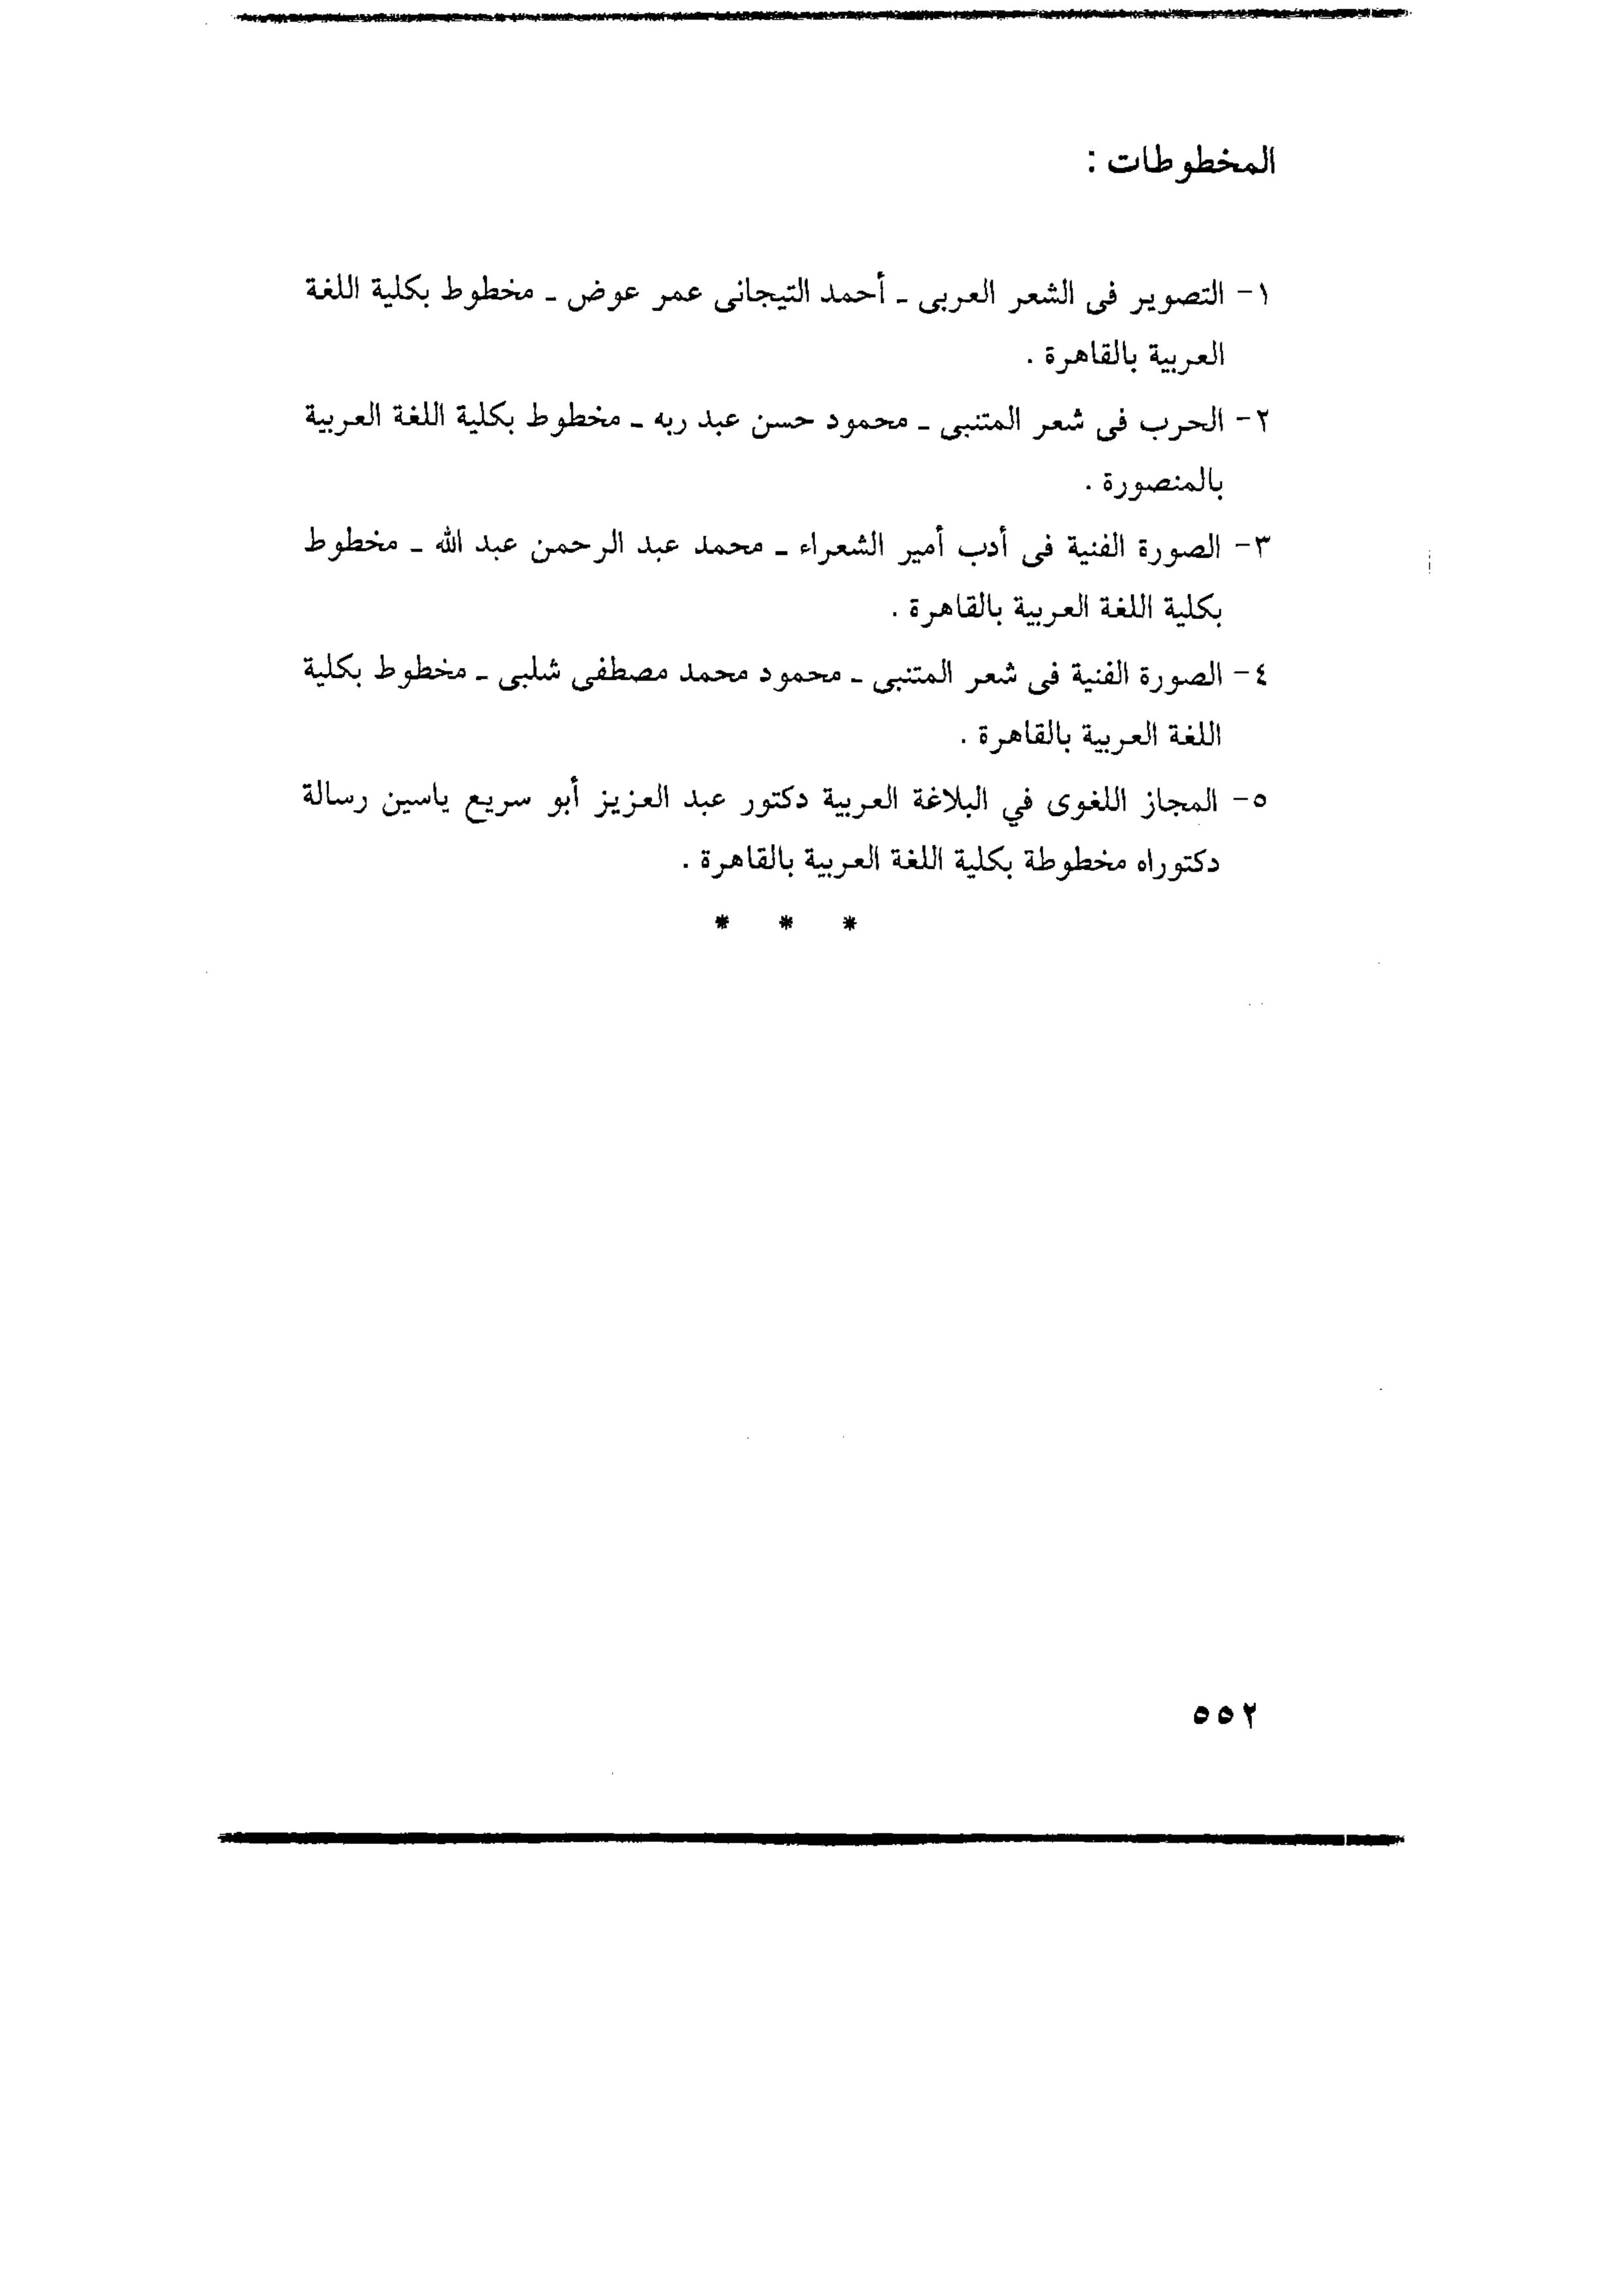 المخطوطات :
١- التصوير فى الشعر العربى ـ أحمد التيجانى عمر عوض ـ مخطوط بكلية اللغة
العربية بالقاهرة .
٢- الحرب فى شعر المتنبى ـ محمود حسن عبد ربه ـ مخطوط بكلية اللغة العربية
بالمنصورة .
٣- الصورة الفنية فى أدب أمير الشعراء ـ محمد عبد الرحمن عبد الله ـ مخطوط
بكلية اللغة العربية بالقاهرة .
٤- الصورة الفنية فى شعر المتنبى ـ محمود محمد مصطفى شلبى ـ مخطوط بكلية
اللغة العربية بالقاهرة .
٥- المجاز اللغوى في البلاغة العربية دكتور عبد العزيز أبو سريع ياسين رسالة
دكتوراه مخطوطة بكلية اللغة العربية بالقاهرة .
* * *
٥٥٢